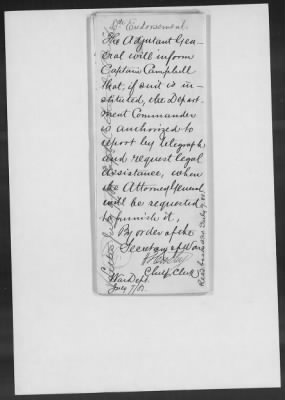 6th Endorsement.
The Adjutant Gen-
eral will inform
Captain Campbell
that, if suit is in-
stituted, the Depart-
ment Commander
is authorized to
report by telegraph
and request legal
assistance, when
the Attorney General
will be requested
to furnish it.
By order of the
Secretary of War
Chief Clerk
War Dept.
July 7/81.